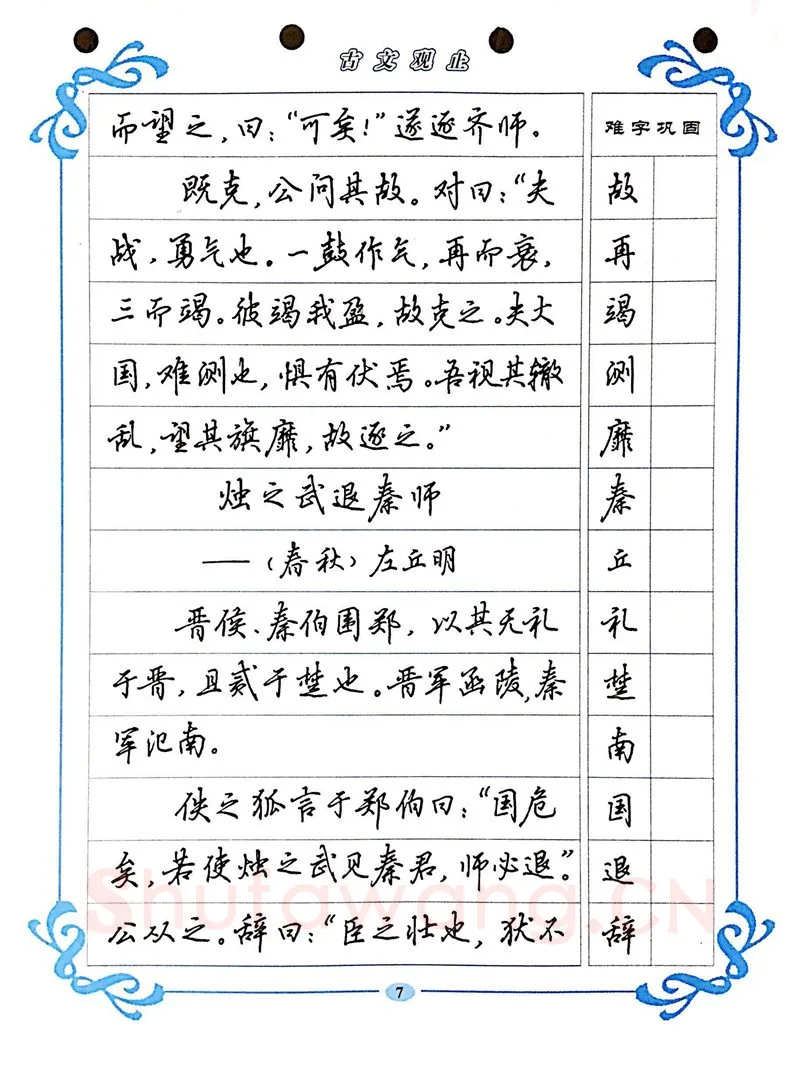 古文观止
而望之,曰:“可矣!”遂逐齐师。
难字巩固
既克,公问其故。对曰:“夫
故
战,勇气也。一鼓作气,再而衰,
再
三而竭。彼竭我盈,故克之。夫大
竭
国,难测也,惧有伏焉。吾视其辙
测
乱,望其旗靡,故逐之。”
靡
烛之武退秦师
秦
——(春秋)左丘明
丘
晋侯、秦伯围郑,以其无礼
礼
于晋,且贰于楚也。晋军函陵,秦
楚
军氾南。
南
佚之狐言于郑伯曰:“国危
国
矣,若使烛之武见秦君,师必退。”
退
公从之。辞曰:“臣之壮也,犹不
辞
Shufawang.CN
7